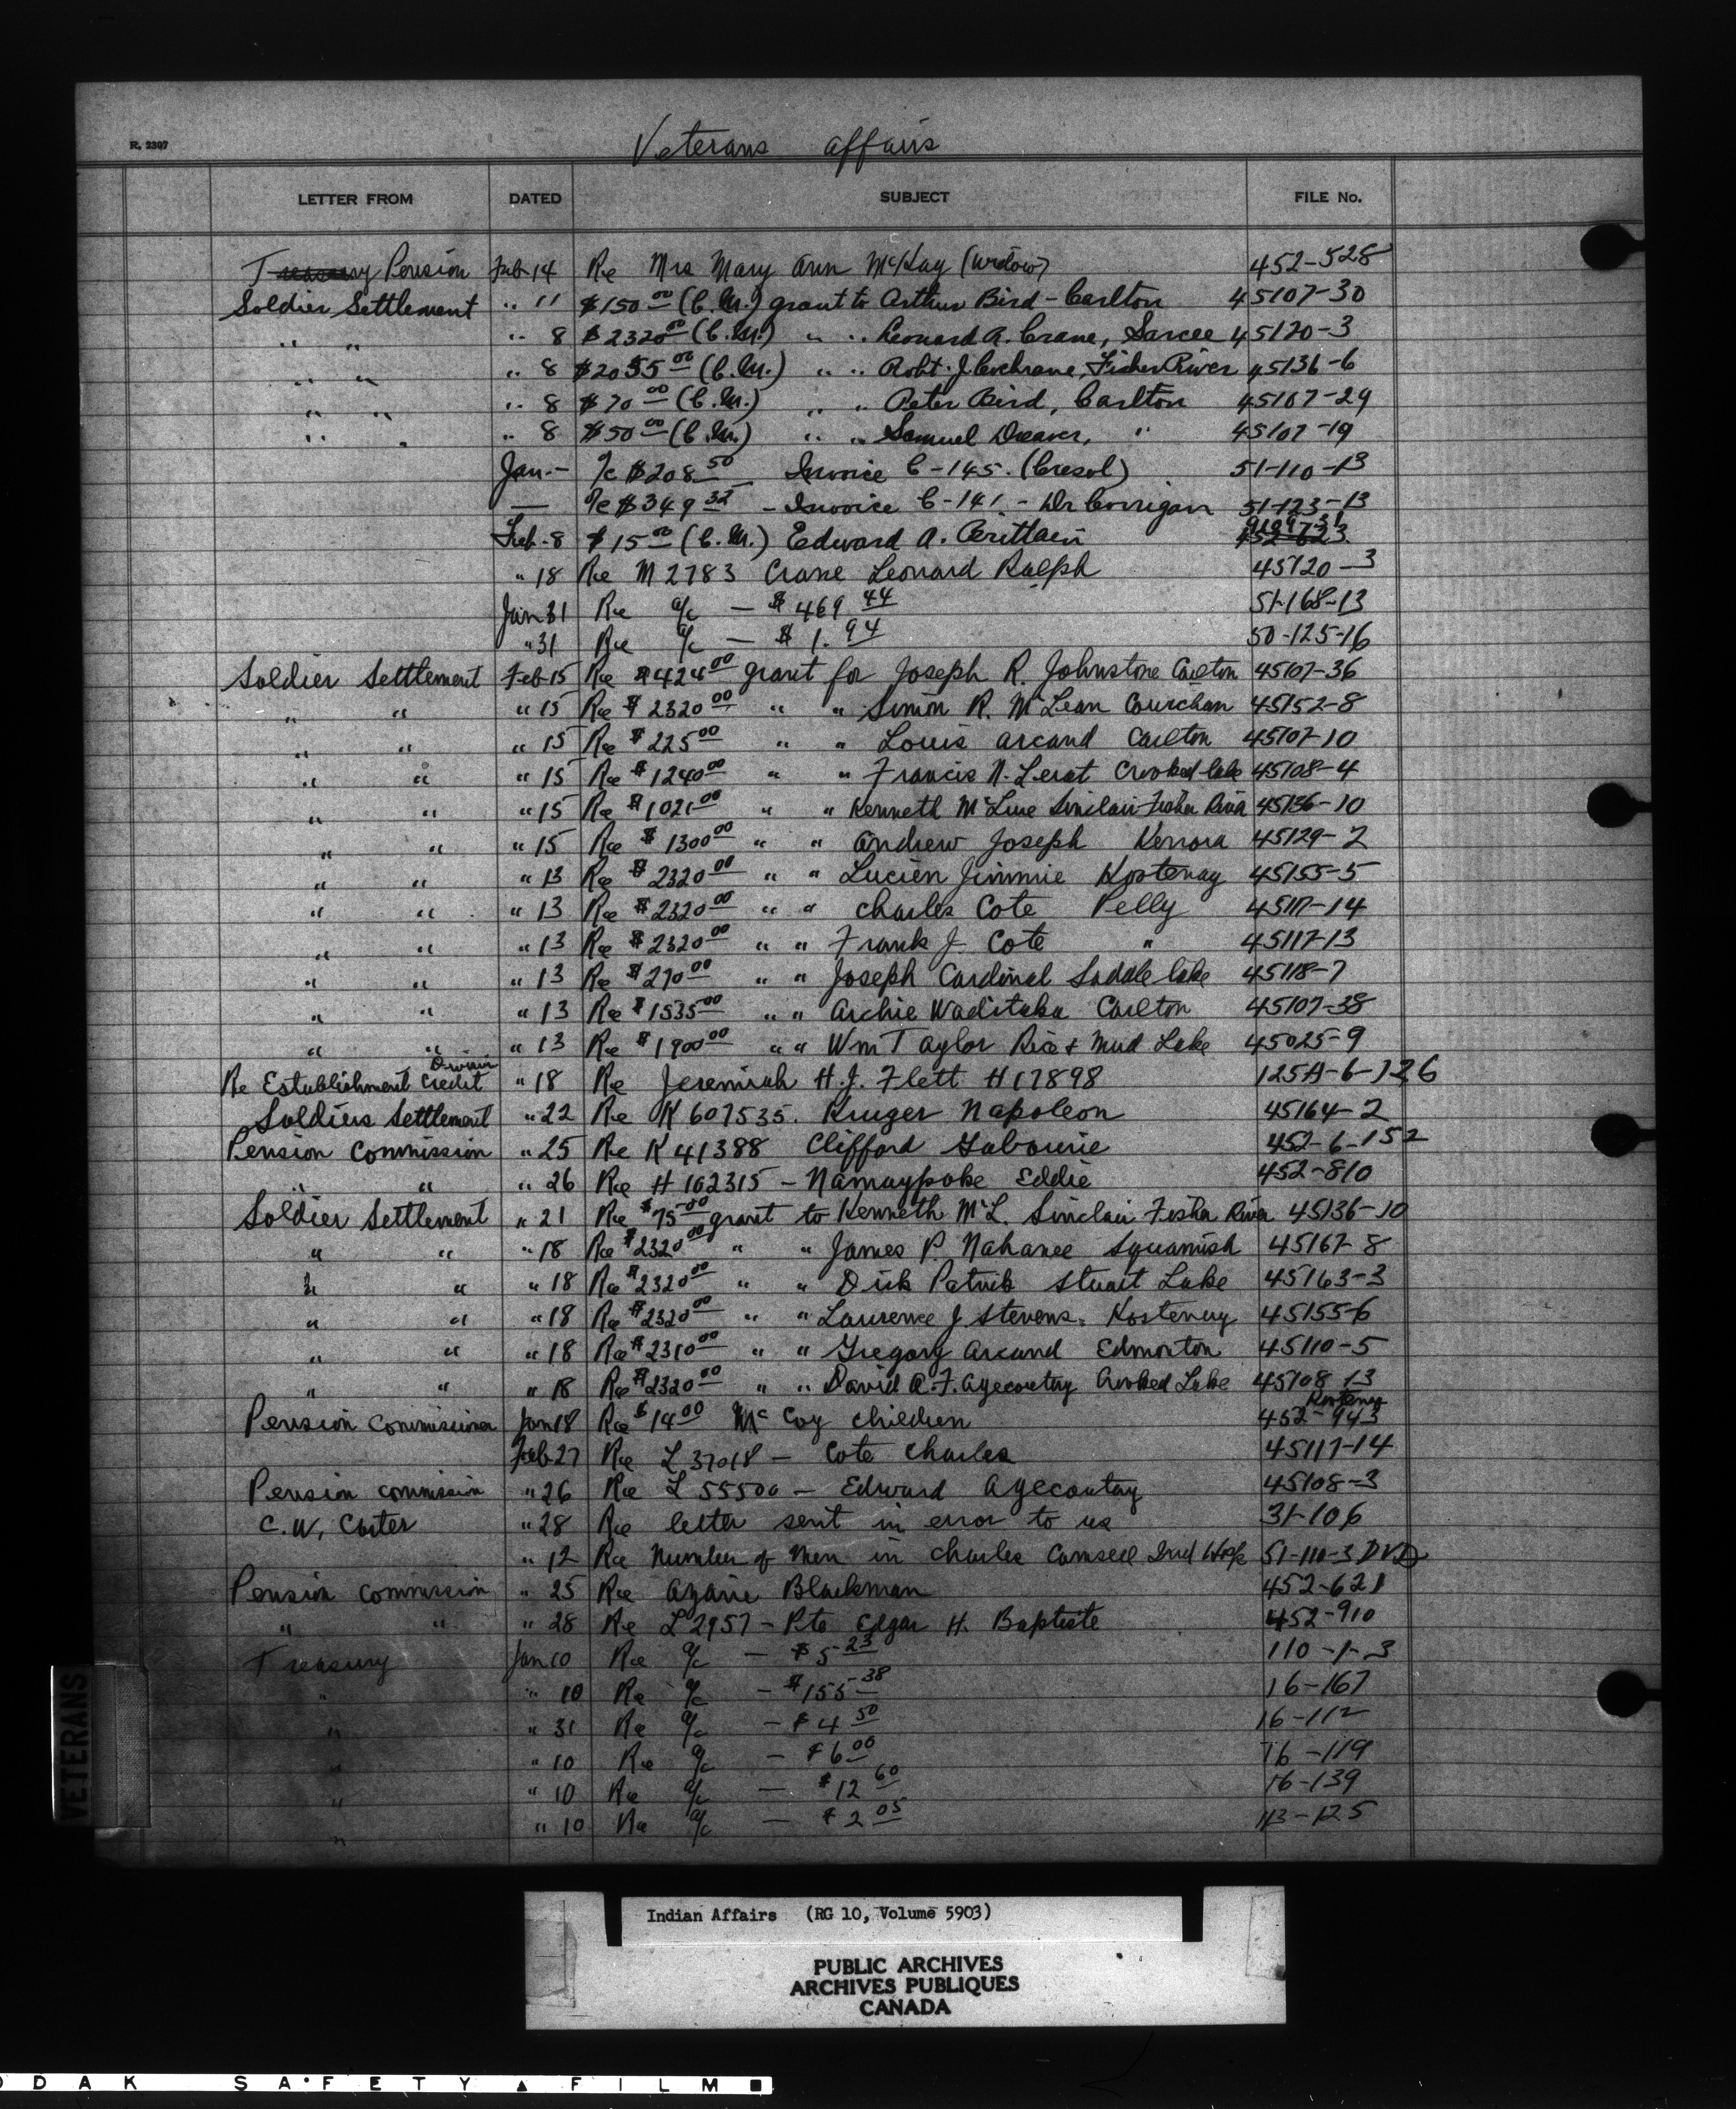 R. 2307
Veterans affairs
LETTER FROM DATED SUBJECT FILE No.
Treasury Pension Feb-14 Re Mrs Mary Ann McKay (widow) 452-528
Soldier Settlement " 11 $150 00 (C.M.) grant to Arthur Bird - Carlton 45107-30
" " " 8 $2320 00 (C.M.) " " Leonard R. Crane, Sarcee 45120-3
" " " 8 $2055 00 (C.M.) " " Robt. J. Cochrane, Fisher River 45136-6
" " " 8 $70 00 (C.M.) " " Peter Bird, Carlton 45107-29
" " " 8 $50 00 (C.M.) " " Samuel Dreaver, " 45107-19
Jan.- a/c $208 50 Invoice C-145. (Cresol) 51-110-13
— a/c $349 32 - Invoice C-141. - Dr Corrigan 51-123-13
Feb-8 $15 00 (C.M.) Edward A. Brittain
" 18 Re M2783 Crane Leonard Ralph 45120-3
Jan 31 Re a/c — $469 44 51-168-13
" 31 Re a/c — $1.94 50-125-16
Soldier Settlement Feb-15 Re $424 00 grant for Joseph R. Johnstone Carlton 45107-36
" " " 15 Re $2320 00 " " Simon R. McLean Cowichan 45152-8
" " " 15 Re $225 00 " " Louis Arcand Carlton 45107-10
" " " 15 Re $1240 00 " " Francis N. Lerat Crooked Lake 45108-4
" " " 15 Re $1021 00 " " Kenneth McLure Sinclair Fisher River 45136-10
" " " 15 Re $1300 00 " " Andrew Joseph Kenora 45129-2
" " " 13 Re $2320 00 " " Lucien Jimmie Kostenay 45155-5
" " " 13 Re $2320 00 " " Charles Cote Pelly 45117-14
" " " 13 Re $2320 00 " " Frank J Cote " 45117-13
" " " 13 Re $270 00 " " Joseph Cardinal Saddle Lake 45118-7
" " " 13 Re $1535 00 " " Archie Waditaka Carlton 45107-38
" " " 13 Re $1900 00 " " Wm Taylor Rice & Mud Lake 45025-9
Re Establishment Credit " 18 Re Jeremiah H.J. Flett H17898 125A-6-126
Soldiers Settlement " 22 Re K607535. Kruger Napoleon 45164-2
Pension Commission " 25 Re K41388 Clifford Gabourie 452-6-152
" " " 26 Re H102315 - Namaypoke Eddie 452-810
Soldier Settlement " 21 Re $75 00 grant to Kenneth McL. Sinclair Fisher River 45136-10
" " " 18 Re $2320 00 " " James P. Nahanee Squamish 45167-8
" " " 18 Re $2320 00 " " Dick Patrick Stuart Lake 45163-3
" " " 18 Re $2320 00 " " Laurence J Stevens. Kostenay 45155-6
" " " 18 Re $2310 00 " " Gregory Arcand Edmonton 45110-5
" " " 18 Re $2320 00 " " David A.F. Ayecoutay Crooked Lake 45108-13
Kostenay
Pension Commissioner Jan 18 Re $14 00 McCoy children 452-943
Feb-27 Re L37018 - Cote Charles 45117-14
Pension commission " 26 Re L55500 - Edward Ayecoutay 45108-3
C.W. Carter " 28 Re letter sent in error to us 31-106
" 12 Re Number of Men in Charles Camsell Ind Hosp 51-110-3 DVA
Pension commission " 25 Re Azarie Blackman 452-621
" " " 28 Re L2957 - Pte Edgar H. Baptiste 452-910
Treasury Jan 10 Re a/c — $5 23 110-1-3
" " 10 Re a/c - $155 38 16-167
" " 31 Re a/c - $4 50 16-112
" " 10 Re a/c - $6 00 16-119
" " 10 Re a/c — $12 60 16-139
" " 10 Re a/c — $2 05 113-125
VETERANS
Indian Affairs (RG 10, Volume 5903)
PUBLIC ARCHIVES
ARCHIVES PUBLIQUES
CANADA
ODAK SAFETY ▲ FILM ■